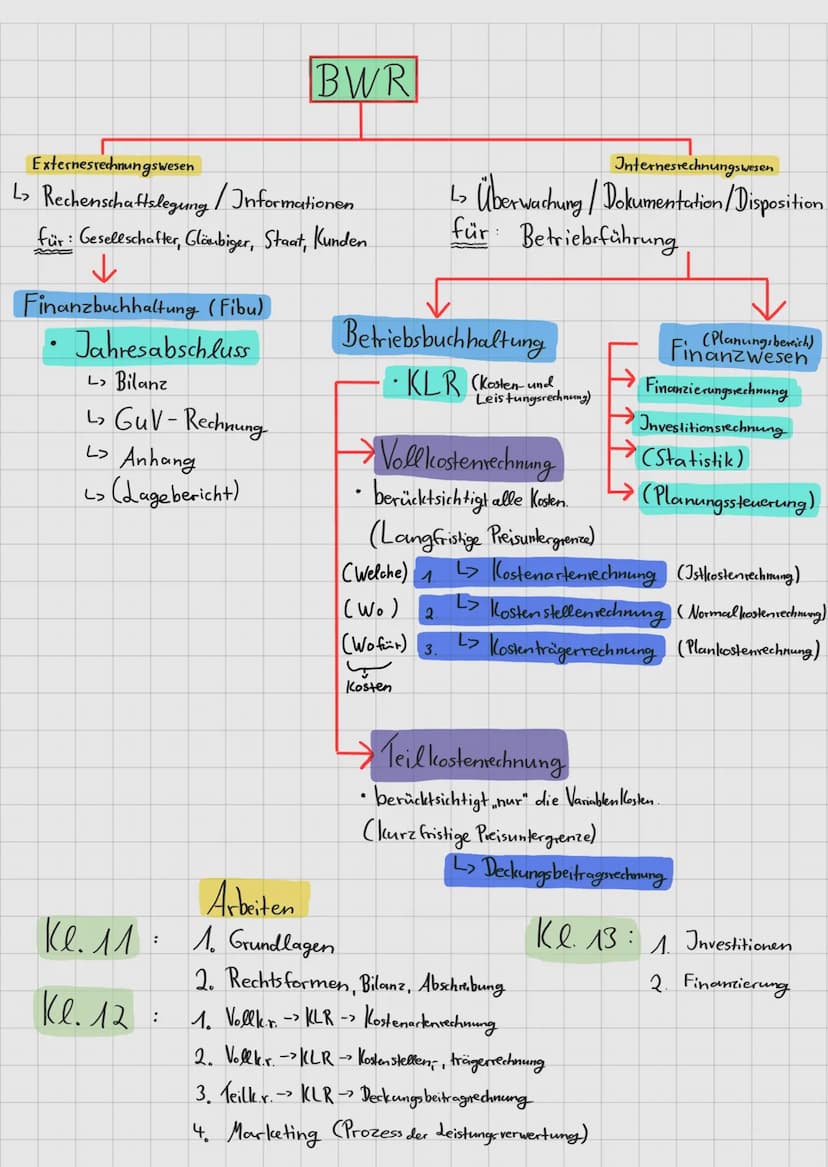 BWR
Externesrechnungswesen
↳ Rechenschaftslegung / Informationen
für: Gesellschafter, Gläubiger, Staat, Kunden
Finanzbuchhaltung (Fibu)
• Jahresabschluss
↳ Bilanz
↳ GuV-Rechnung
↳ Anhang
↳ (Lagebericht)
Internesrechnungswesen
↳ Überwachung / Dokumentation / Disposition
für: Betriebsführung
Betriebsbuchhaltung
• KLR (Kosten- und
Leistungsrechnung)
Vollkostenrechnung
• berücktsichtigt alle Kosten.
(Langfristige Preisuntergrenze)
(Welche) 1 ↳ Kostenartenrechnung (Istkostenrechnung)
(Wo) 2. ↳ Kostenstellenrechnung (Normalkostenrechnung)
(Wofür) 3. ↳ Kostenträgerrechnung (Plankostenrechnung)
Kosten
Teilkostenrechnung
• berücktsichtigt „nur" die Variablen Kosten.
(kurzfristige Preisuntergrenze)
↳ Deckungsbeitragsrechnung
(Planungsbereich)
Finanzwesen
Finanzierungsrechnung
Investitionsrechnung
(Statistik)
(Planungssteuerung)
Arbeiten
Kl. 11 : 1. Grundlagen
2. Rechtsformen, Bilanz, Abschreibung
Kl. 12 : 1. Vollk.r. -> KLR -> Kostenartenrechnung
2. Vollk.r. -> KLR -> Kostenstellen-, trägerrechnung
3. Teilk.r. -> KLR -> Deckungsbeitragrechnung
4. Marketing (Prozess der Leistungsverwertung)
Kl. 13 : 1. Investitionen
2. Finanzierung